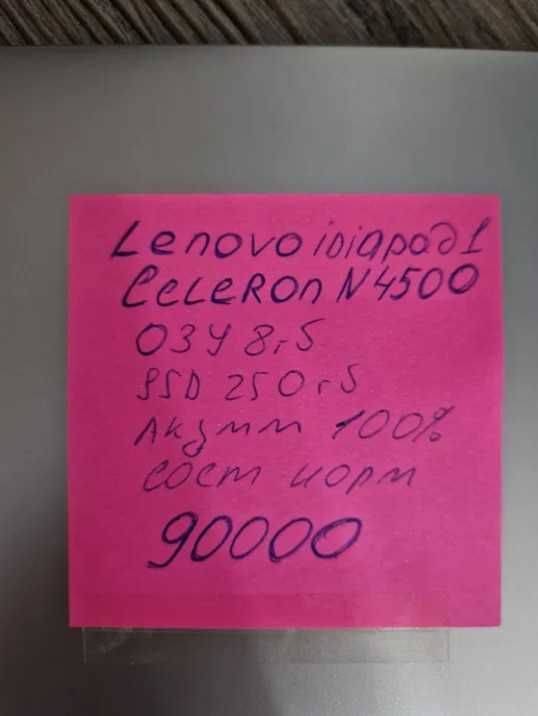 Lenovo idiapad1
CeLeRon N4500
ОЗУ 8гб
SSD 250гб
Аккумм 100%
сост норм
90000